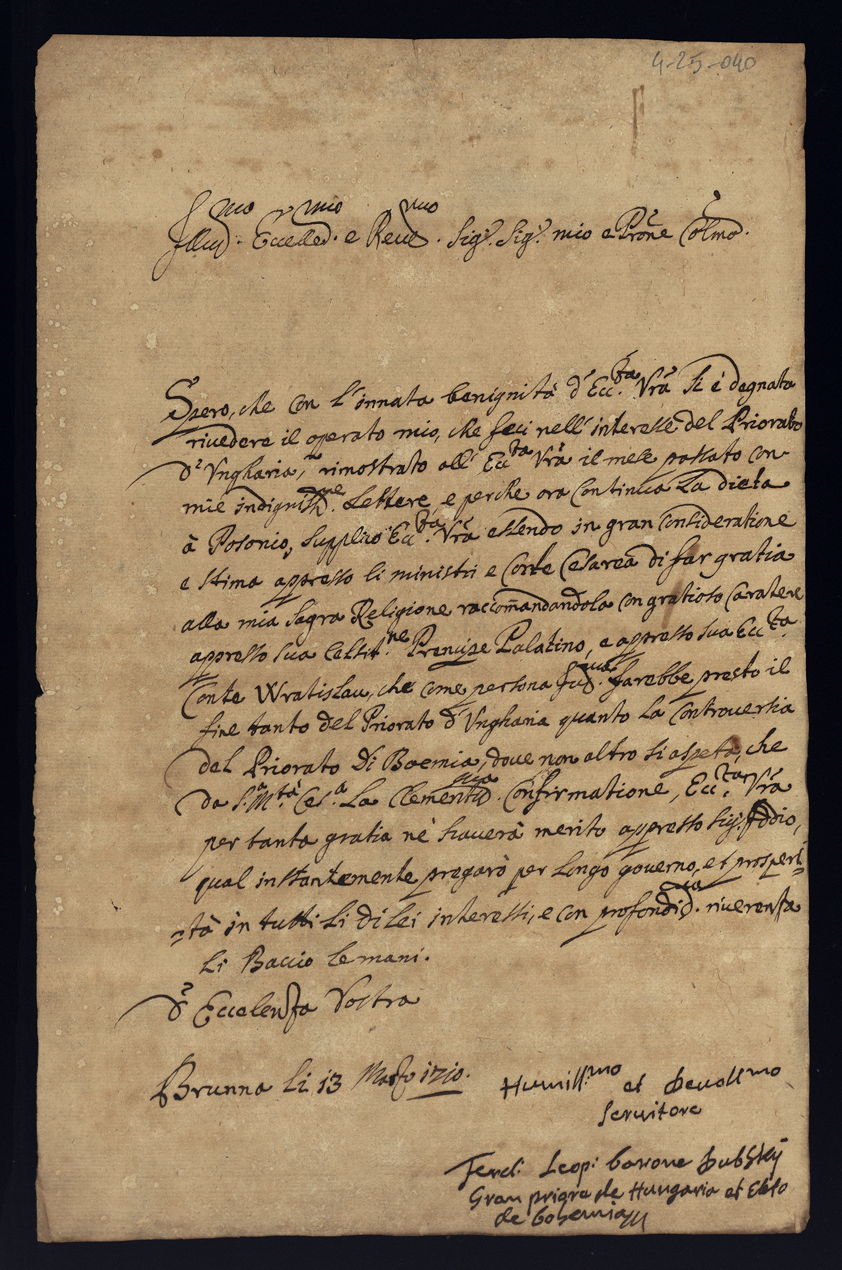 4-25-040
Illus.mo Eccell.mo e Reu.mo Sig.r Sig.r mio e Prõne Colmo.
Spero, che con l'innata benignità d'Ecc.za Vrã si è degnata
riuedere il operato mio, che feci nell'interesse del Priorato
d'Vngharia, rimostrato all'Ecc.za Vrã il mese passato con
mie indigniss.me Lettere, e perche ora continua La dieta
à Posonio, supplico Ecc.za Vrã essendo in gran Consideratione
e stima appresso li ministri e Corte Cesarea di far gratia
alla mia Sagra Religione raccom̃andandola con gratioso Caratere
appresso sua Celsit.ne Prencipe Palatino, e appresso sua Ecc.za
Conte Wratislau, che come persona sarebbe presto il
fine tanto del Priorato d'Vngharia quanto La Controuersia
del Priorato Di Boemia, doue non altro si aspeta, che
da S.a M.tà Ces.a La Clementis.ma Confirmatione, Ecc.za Vrã
per tanta gratia nè hauerà merito appresso Sig.r Iddio,
qual instantemente pregarò per Longo gouerno, et prosperi-
-tà in tutti Li di Lei interessi, e con profondis.ma riuerenza
Li Baccio le mani.
d'Eccelenza Vostra
Brunna Li 13 Marzo 1710.
Humill.mo et Deuott.mo
Seruitore
Ferd: Leop: barone Dubsky
Gran priore de Hungaria et Eleto
de bohemia